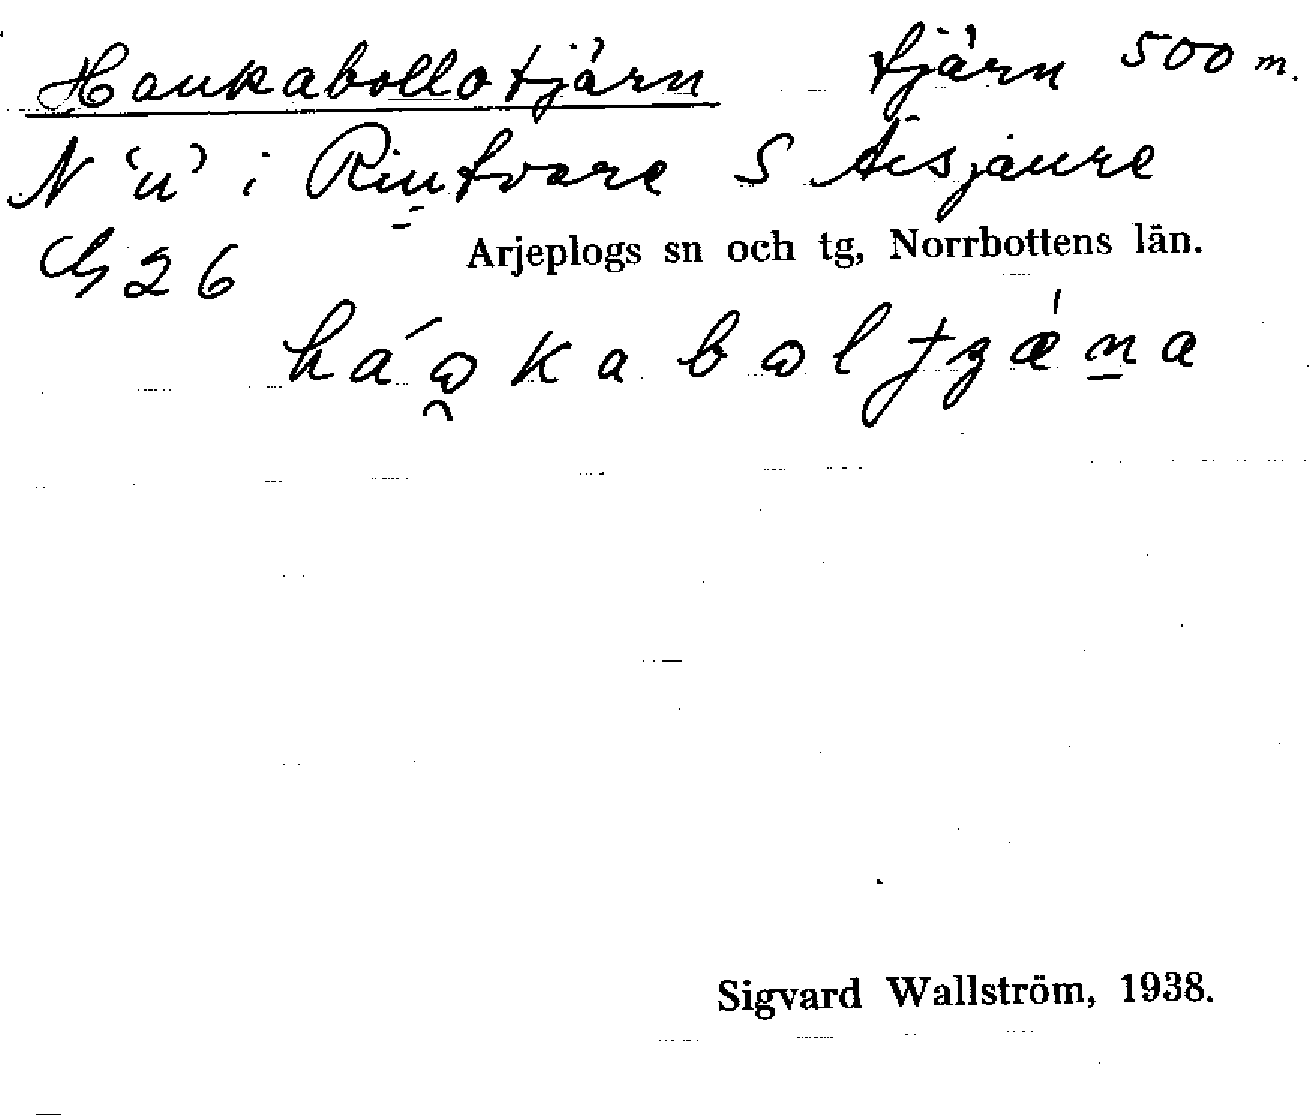 Haukabollotjärn tjärn 500 m.
N 'u' i Riutvare S Aisjaure
G 26 Arjeplogs sn och tg, Norrbottens län.
Sigvard Wallström, 1938.